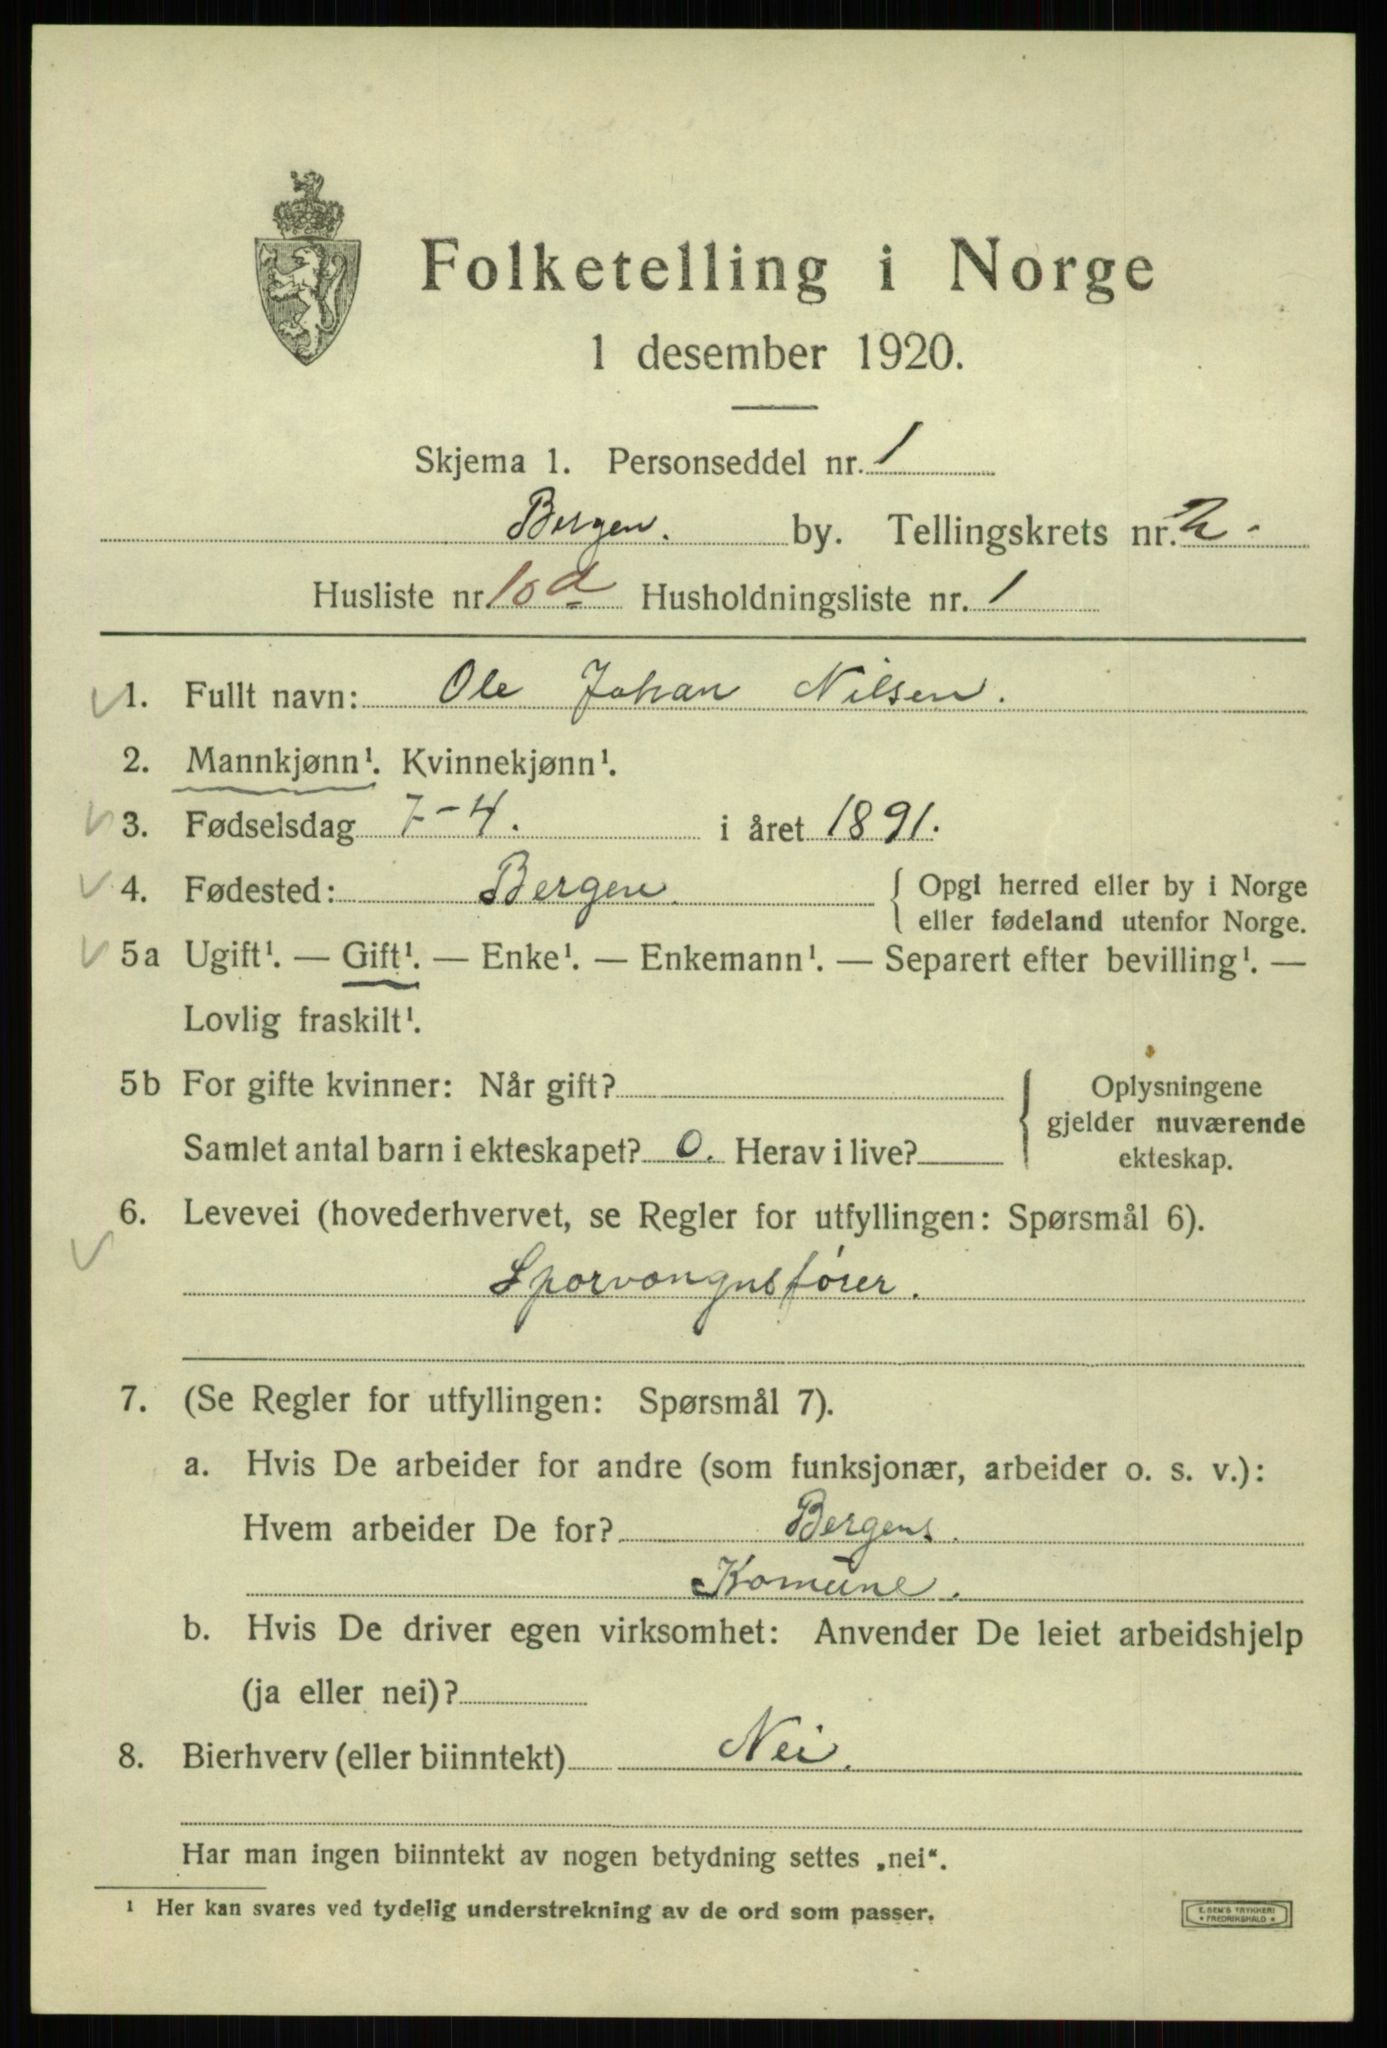 Folketelling i Norge
1 desember 1920.
Skjema 1. Personseddel nr. 1
Bergen. by. Tellingskrets nr. 2.
Husliste nr. 10 d Husholdningsliste nr. 1
1. Fullt navn: Ole Johan Nilsen.
2. Mannkjønn¹. Kvinnekjønn¹.
3. Fødselsdag 7-4. i året 1891.
4. Fødested: Bergen. { Opgi herred eller by i Norge
eller fødeland utenfor Norge.
5a Ugift¹. — Gift¹. — Enke¹. — Enkemann¹. — Separert efter bevilling¹. —
Lovlig fraskilt¹.
5b For gifte kvinner: Når gift? { Oplysningene
gjelder nuværende
Samlet antal barn i ekteskapet? 0. Herav i live?
ekteskap.
6. Levevei (hovederhvervet, se Regler for utfyllingen: Spørsmål 6).
Sporvongnsfører.
7. (Se Regler for utfyllingen: Spørsmål 7).
a. Hvis De arbeider for andre (som funksjonær, arbeider o. s. v.):
Hvem arbeider De for? Bergens.
Komūne.
b. Hvis De driver egen virksomhet: Anvender De leiet arbeidshjelp
(ja eller nei)?
8. Bierhverv (eller biinntekt) Nei.
Har man ingen biinntekt av nogen betydning settes „nei“.
¹ Her kan svares ved tydelig understrekning av de ord som passer.
E. SEM'S TRYKKERI
* FREDRIKSHALD *